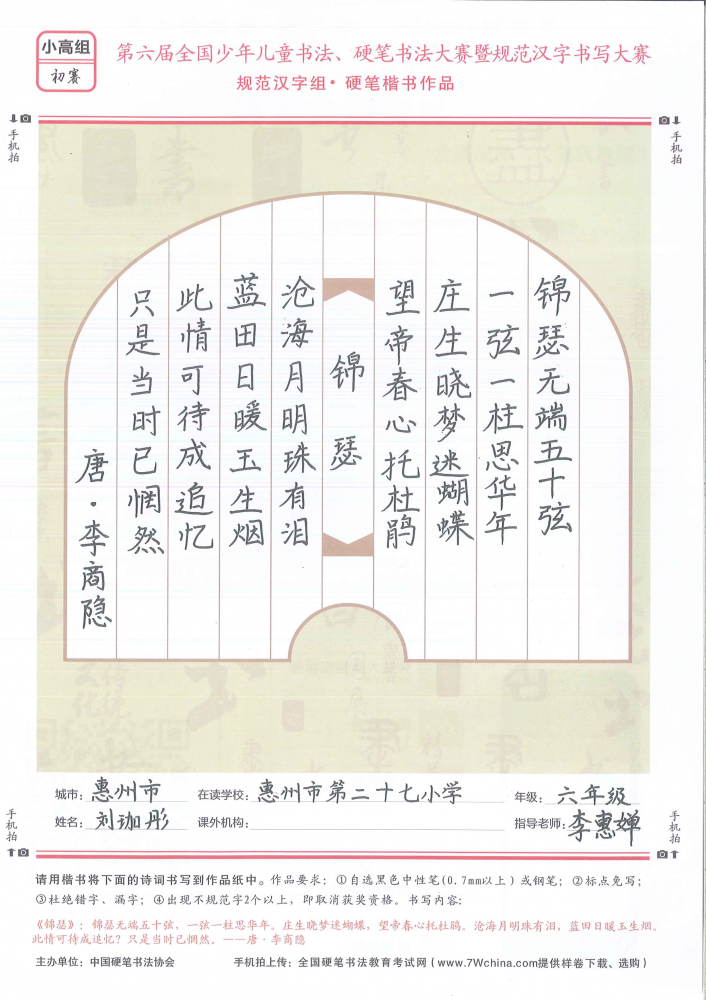 小高组
初赛
第六届全国少年儿童书法、硬笔书法大赛暨规范汉字书写大赛
规范汉字组•硬笔楷书作品
手机拍
手机拍
锦瑟无端五十弦
一弦一柱思华年
庄生晓梦迷蝴蝶
望帝春心托杜鹃
锦瑟
沧海月明珠有泪
蓝田日暖玉生烟
此情可待成追忆
只是当时已惘然
唐·李商隐
城市：惠州市 在读学校：惠州市第二十七小学 年级：六年级
姓名：刘珈彤 课外机构： 指导老师：李惠婵
手机拍
手机拍
请用楷书将下面的诗词书写到作品纸中。作品要求：①自选黑色中性笔(0.7mm以上）或钢笔；②标点免写；
③杜绝错字、漏字；④出现不规范字2个以上，即取消获奖资格。书写内容：
《锦瑟》：锦瑟无端五十弦，一弦一柱思华年。庄生晓梦迷蝴蝶，望帝春心托杜鹃。沧海月明珠有泪，蓝田日暖玉生烟。
此情可待成追忆？只是当时已惘然。——唐·李商隐
主办单位：中国硬笔书法协会 手机拍上传：全国硬笔书法教育考试网（www.7Wchina.com提供样卷下载、选购）